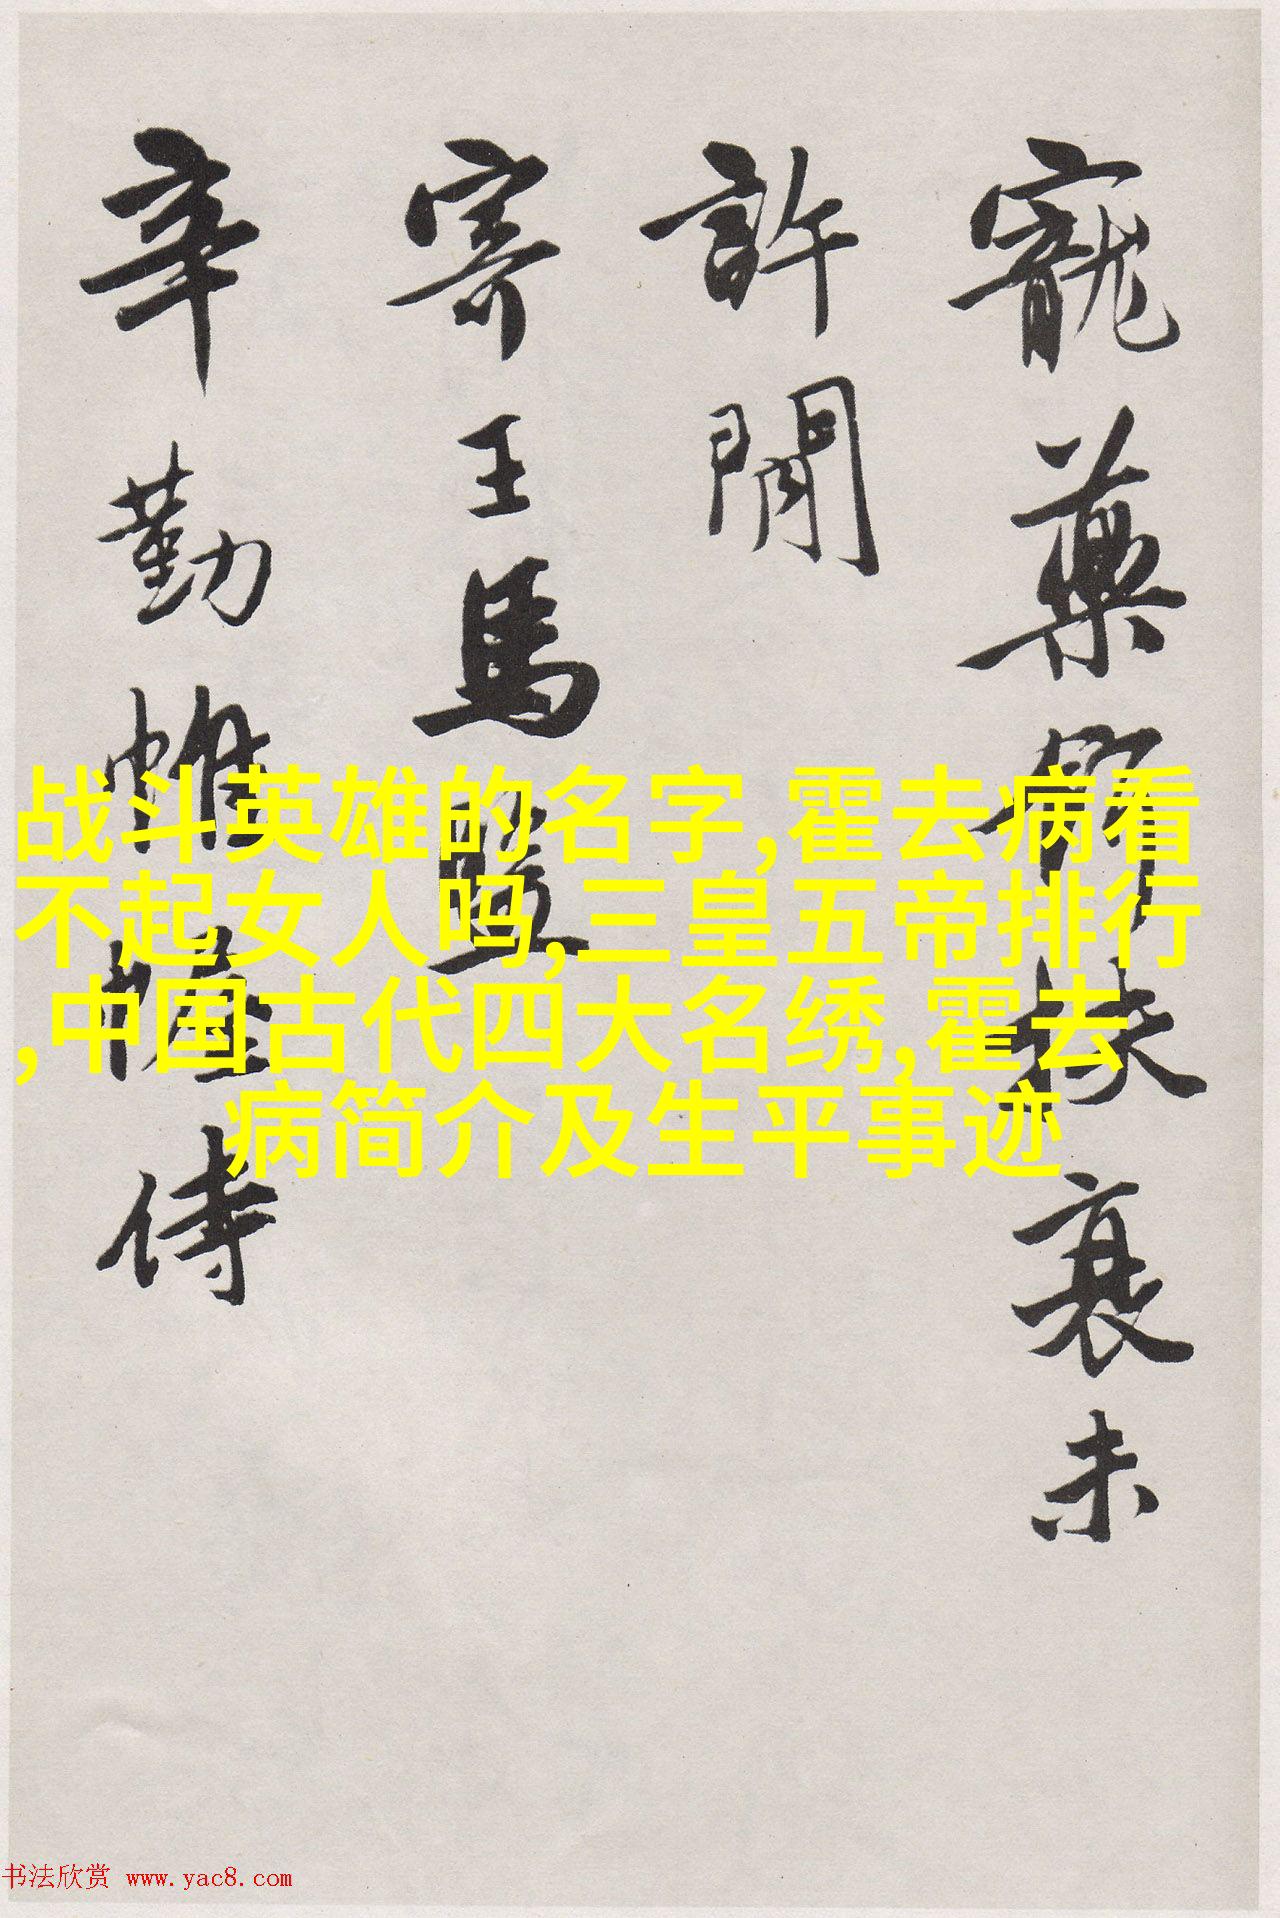 寵藥節扶衰未
許閒
寄王馬監
辛勤帷幄侍
战斗英雄的名字,霍去病看
不起女人吗,三皇五帝排行
,中国古代四大名绣,霍去
病简介及生平事迹
书法欣赏 www.yac8.com